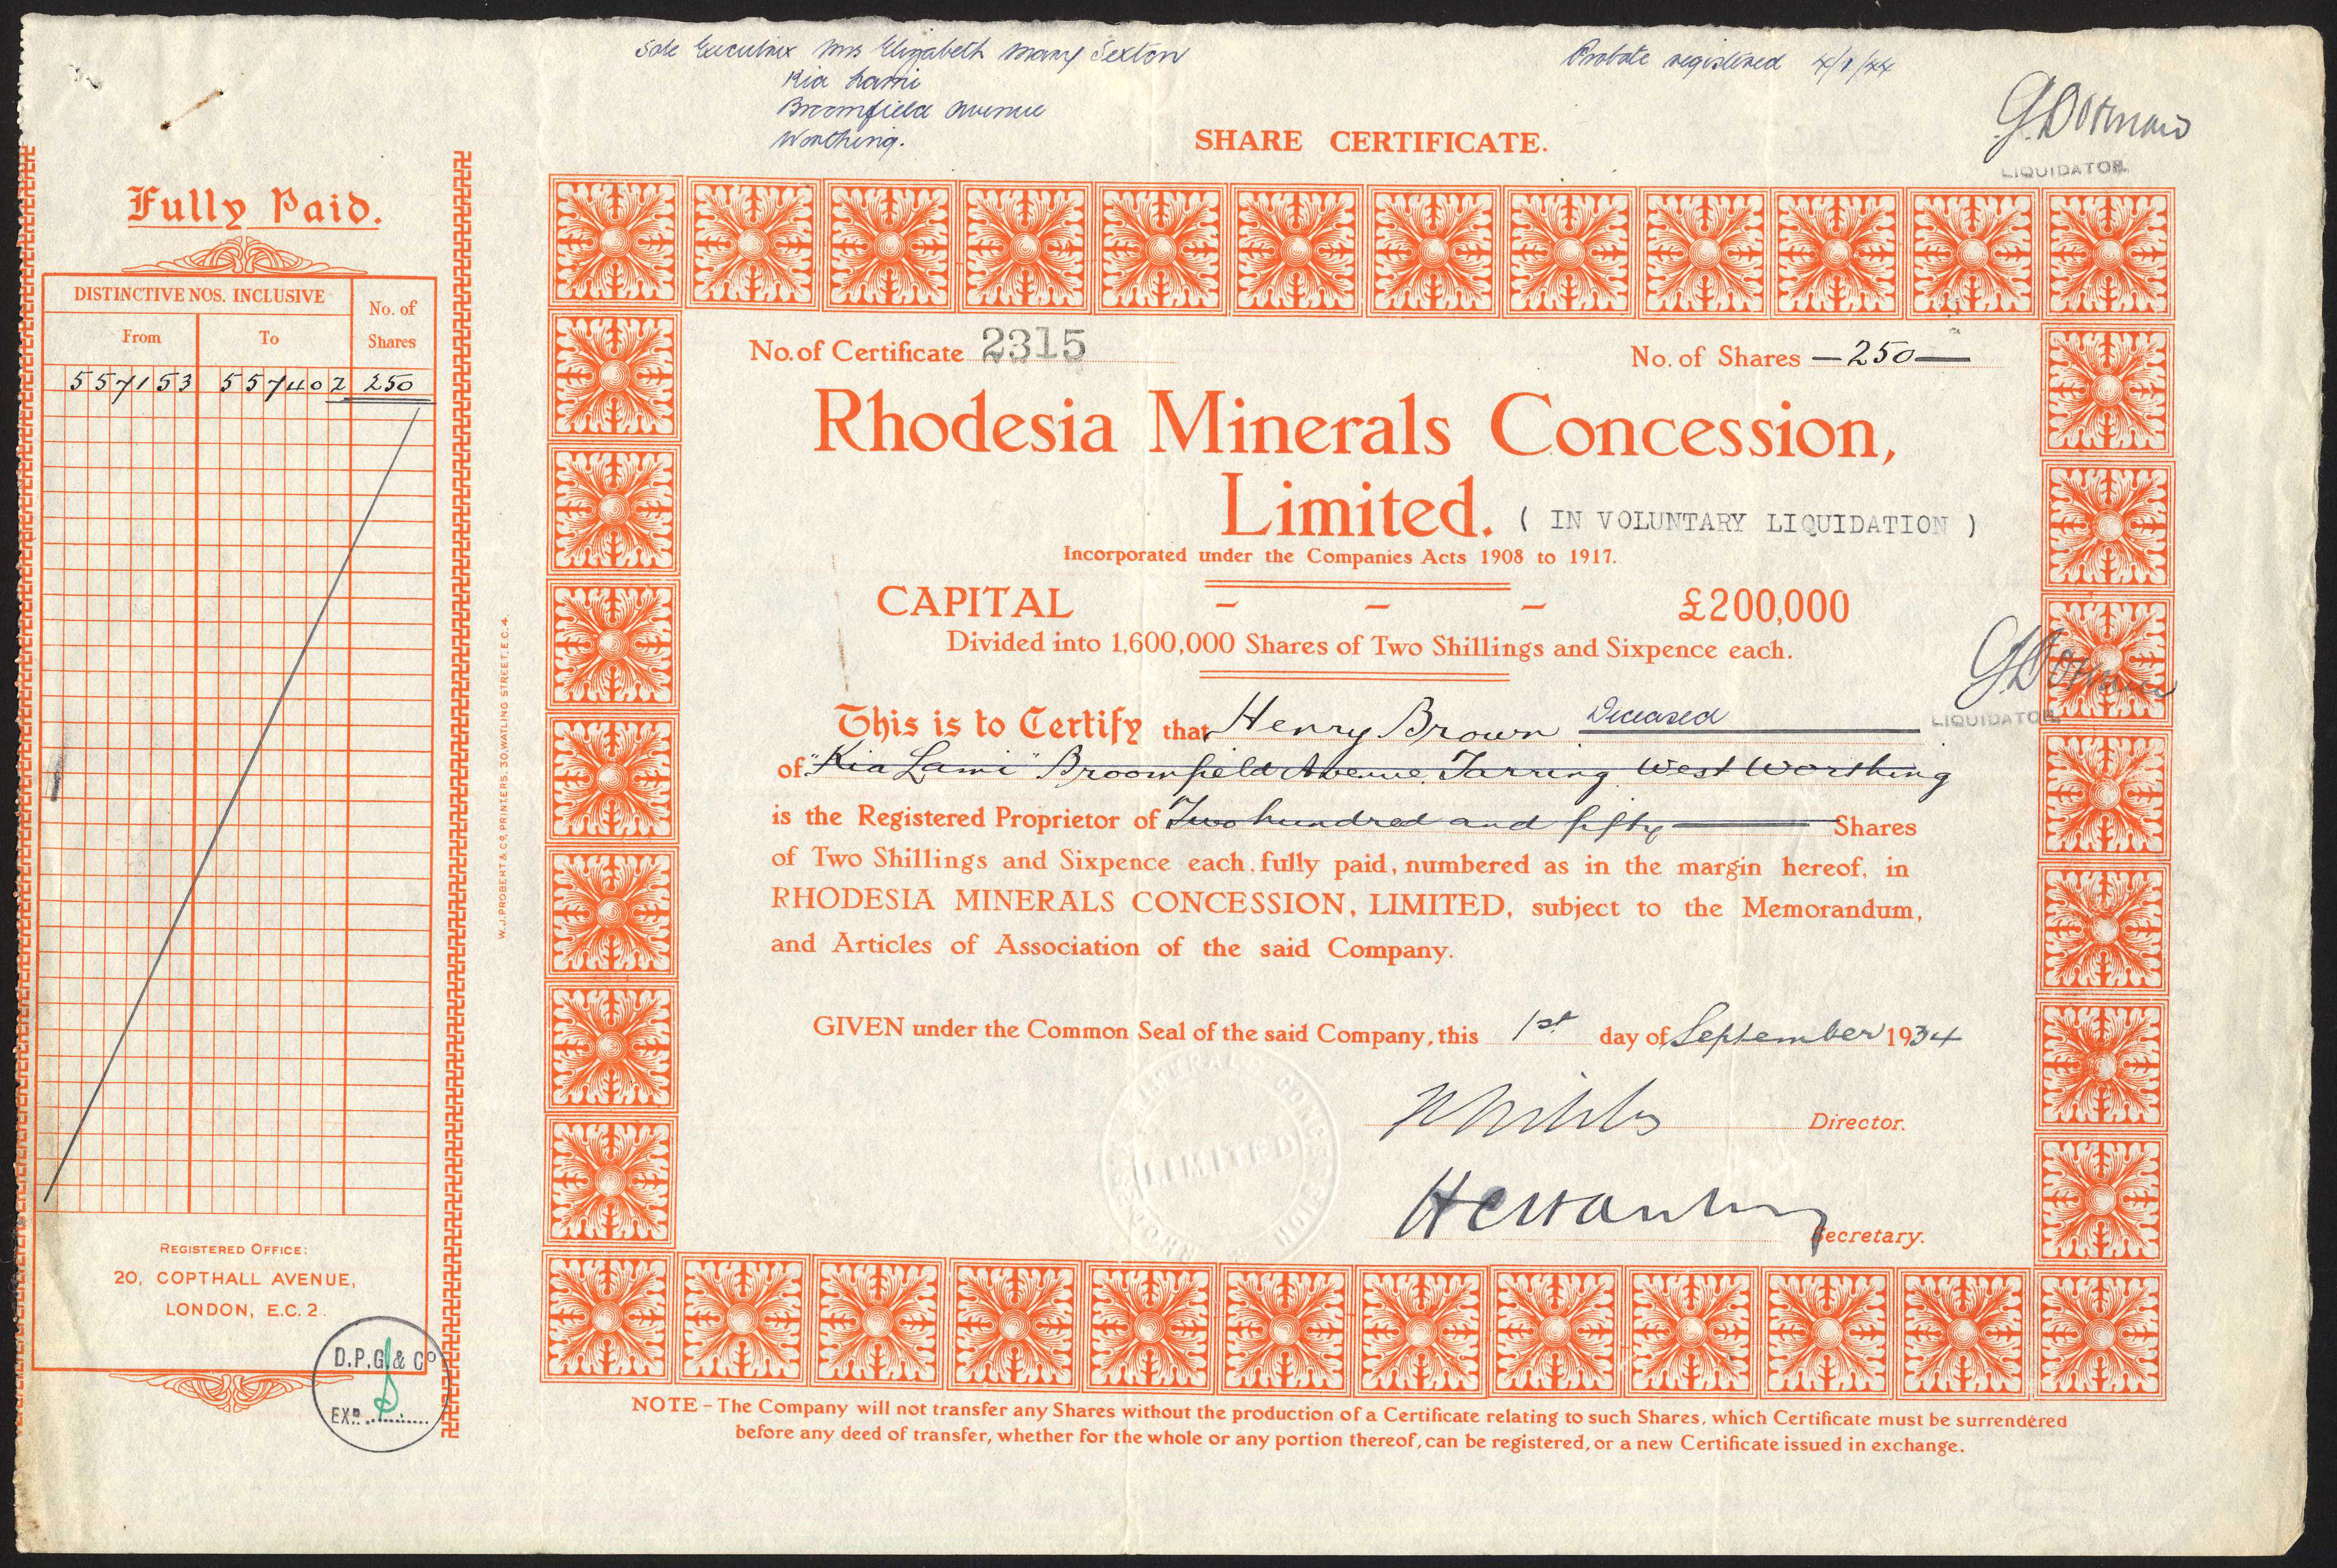 Sole Executrix Mrs Elizabeth Mary Sexton
Kia Lami
Broomfield Avenue
Worthing.
Probate registered 4/1/44
G. Dorman
LIQUIDATOR.
SHARE CERTIFICATE.
Fully Paid.
DISTINCTIVE NOS. INCLUSIVE
No. of Shares
From
To
557153 557402 250
REGISTERED OFFICE:
20, COPTHALL AVENUE,
LONDON, E.C. 2.
D.P.G. & Co
EXD. ..........
W. J. PROBERT & CO. PRINTERS. 30, WATLING STREET. E.C. 4.
No. of Certificate 2315
No. of Shares —250—
Rhodesia Minerals Concession,
Limited. ( IN VOLUNTARY LIQUIDATION )
Incorporated under the Companies Acts 1908 to 1917.
CAPITAL - - - £200,000
Divided into 1,600,000 Shares of Two Shillings and Sixpence each.
G. Dorman
LIQUIDATOR.
This is to Certify that Henry Brown Deceased
of "Kia Lami" Broomfield Avenue, Tarring West Worthing
is the Registered Proprietor of Two hundred and fifty Shares
of Two Shillings and Sixpence each, fully paid, numbered as in the margin hereof, in
RHODESIA MINERALS CONCESSION, LIMITED, subject to the Memorandum,
and Articles of Association of the said Company.
GIVEN under the Common Seal of the said Company, this 1st day of September 1934
Director.
Secretary.
RHODESIA MINERALS CONCESSION
LIMITED
NOTE – The Company will not transfer any Shares without the production of a Certificate relating to such Shares, which Certificate must be surrendered
before any deed of transfer, whether for the whole or any portion thereof, can be registered, or a new Certificate issued in exchange.